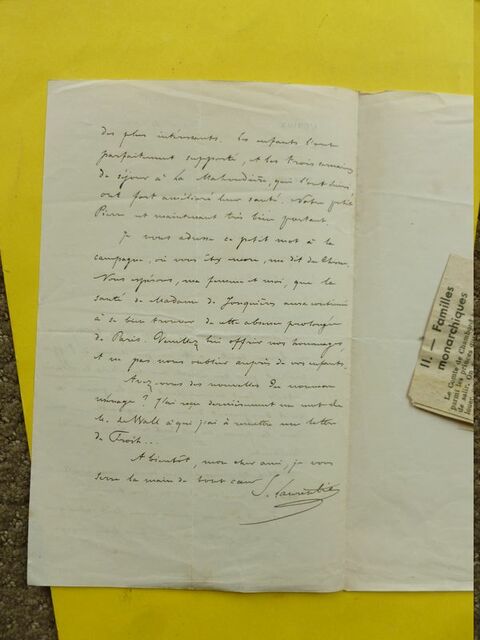 des plus intéressants. Les enfants l'ont
parfaitement supporté, et les trois semaines
de séjour à la
ont fort amélioré leur santé. Notre petit
Pierre est maintenant très bien portant.
Je vous adresse ce petit mot à la
campagne, où vous êtes encore, me dit
Nous espérons, ma femme et moi, que la
santé de Madame de Jonquières aura continué
à se bien trouver de cette absence prolongée
de Paris. Veuillez lui offrir nos hommages
et ne pas nous oublier auprès de vos enfants.
Avez-vous des nouvelles du nouveau
ménage ? J'ai reçu dernièrement un mot de
de Wall à qui j'ai à remettre une lettre
de
A bientôt, mon cher ami, je vous
serre la main de tout cœur
II. — Familles
monarchiques
Le Comte de Chambord
parmi les princes